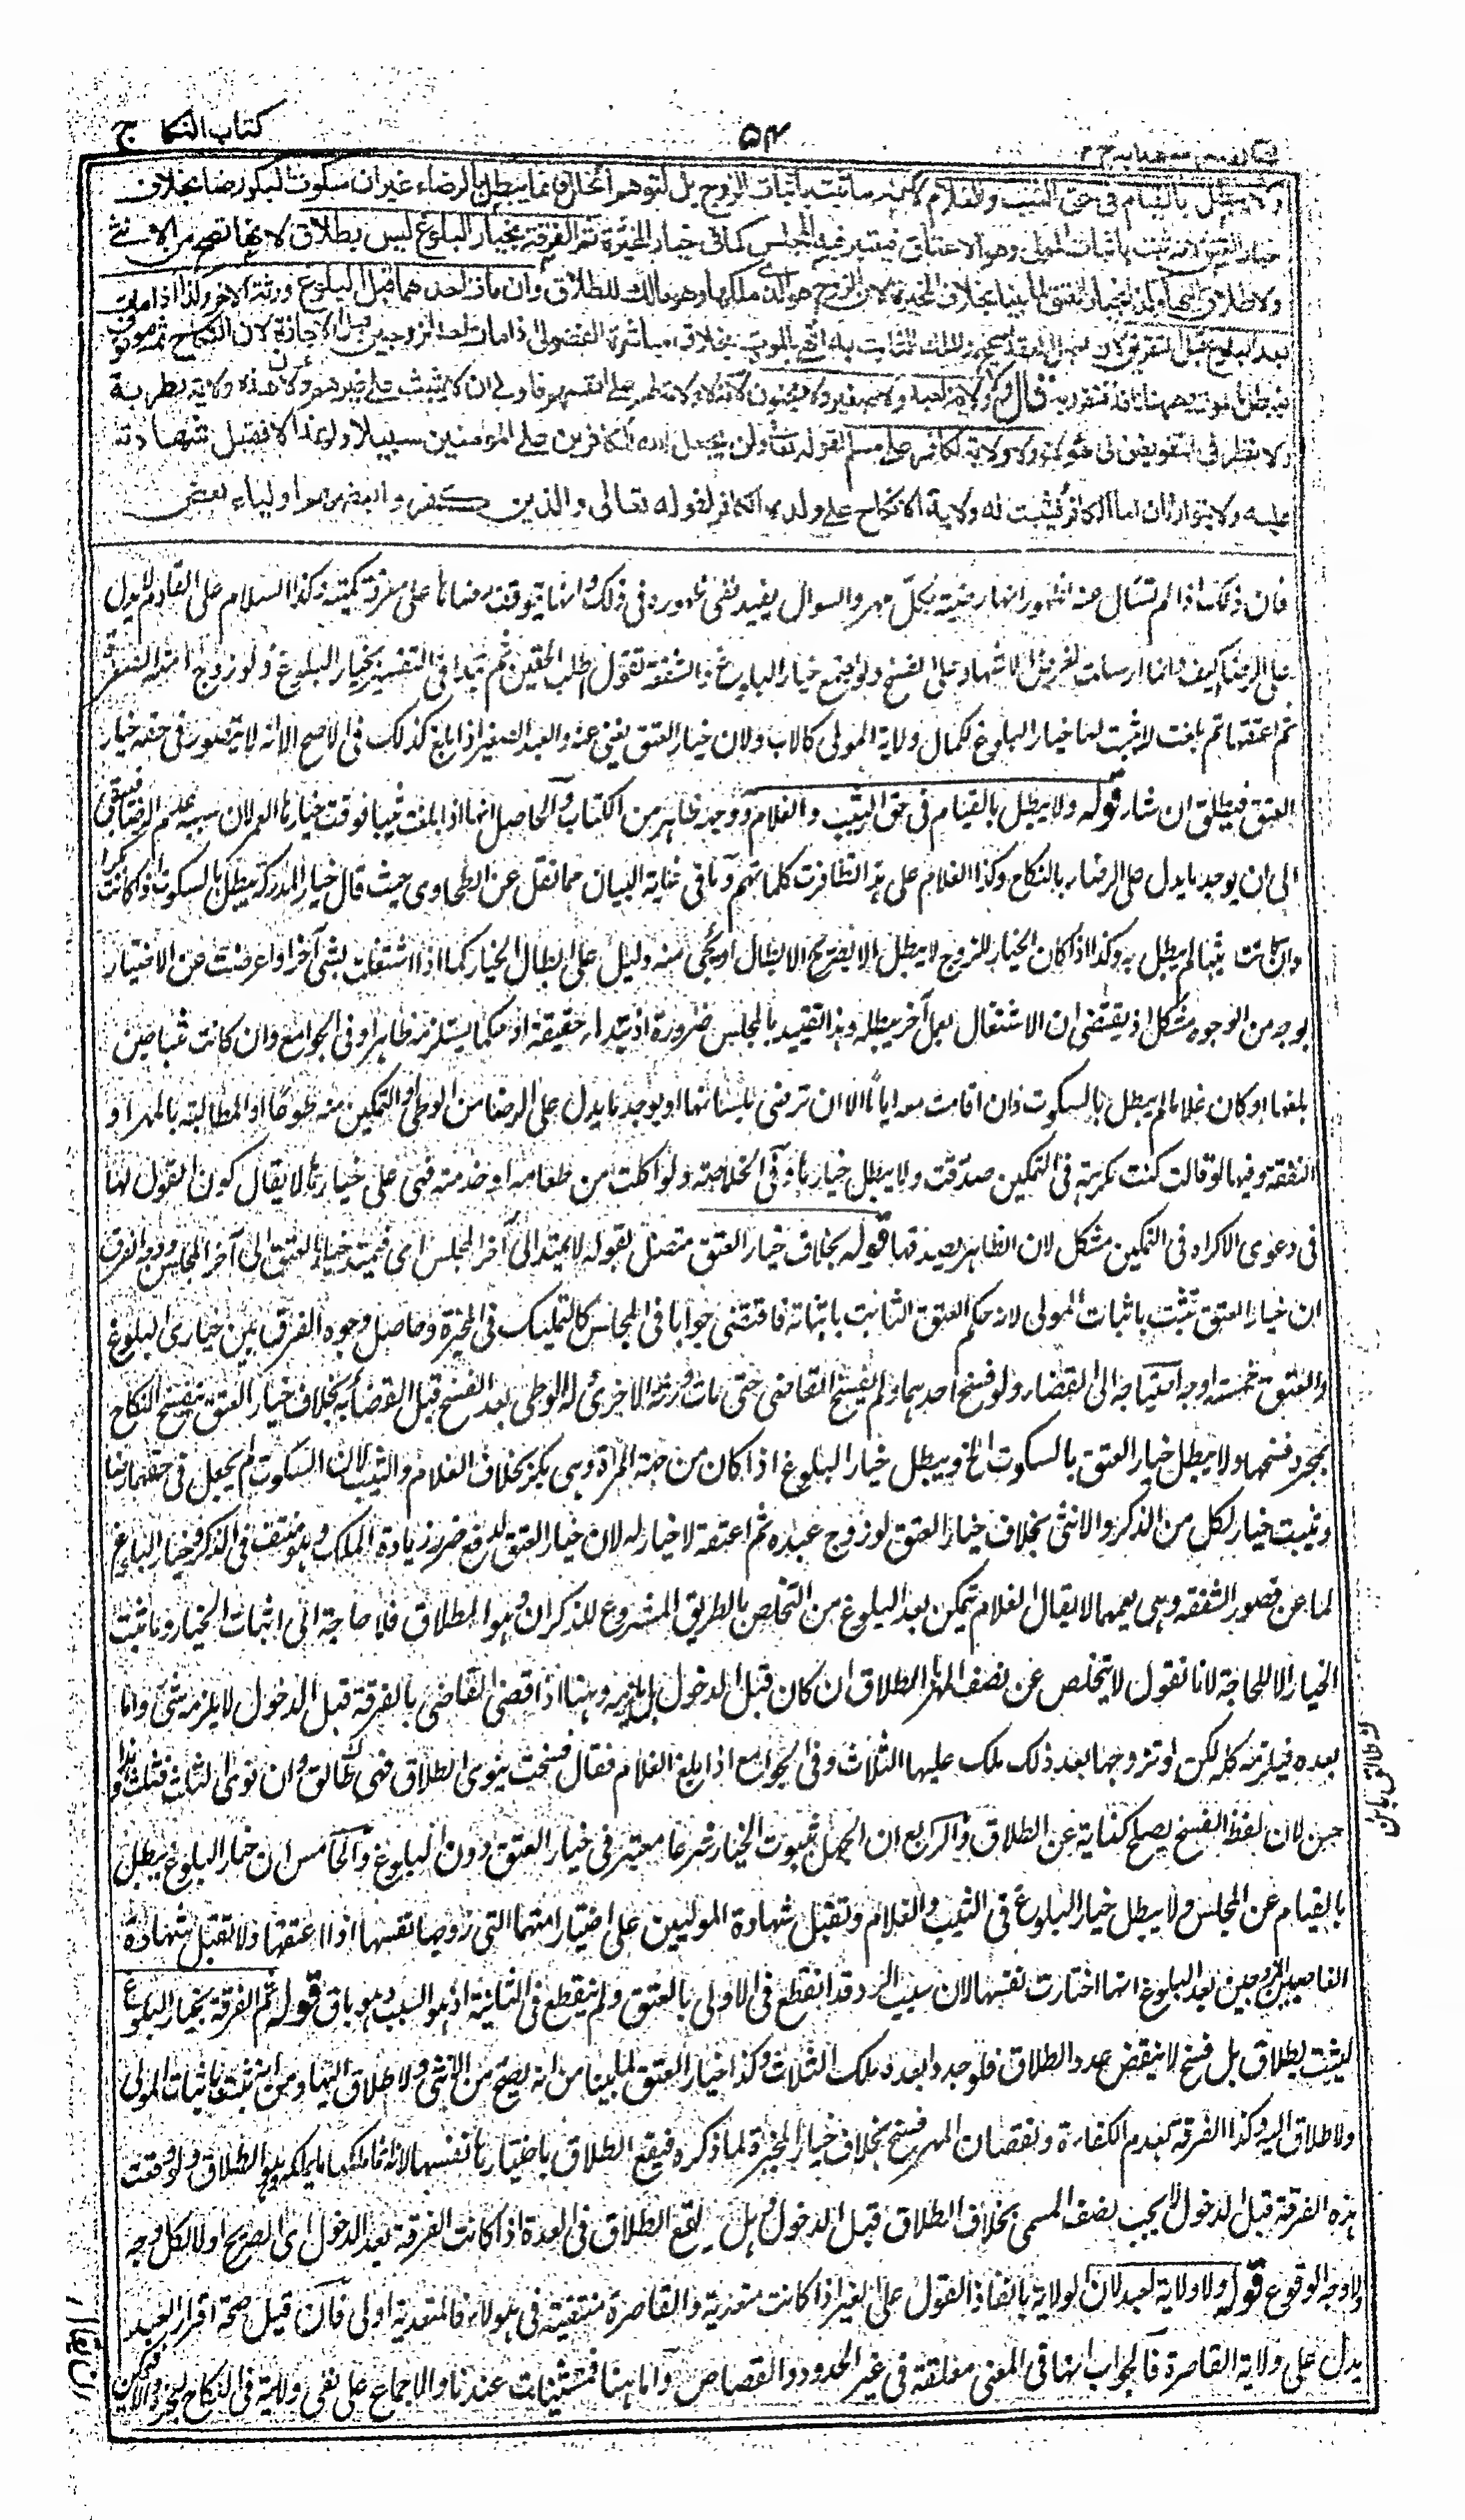 كتاب النكاح
۵۴
ولا يبطل بالقيام فى حق الثيب والغلام لانه ما ثبت باثبات الزوج بل لتوهم الخلل فانما يبطل بالرضاء غير ان سكوت البكر رضا بخلاف
خيار العتق لانه ثبت باثبات المولى وهو الاعتاق فيعتبر فيه المجلس كما فى خيار المخيرة ثم الفرقة بخيار البلوغ ليس بطلاق لانها تصح من الانثى
ولا طلاق اليها وكذا بخيار العتق لما بينا بخلاف المخيرة لان الزوج هو الذى ملكها وهو مالك للطلاق وان مات احدهما قبل البلوغ ورثه الاخر وكذا اذا مات
بعد البلوغ قبل التفريق لان اصل العقد صحيح والملك الثابت به انتهى بالموت بخلاف مباشرة الفضولى اذا مات احد الزوجين قبل الاجازة لان النكاح ثمه موقوف
فيبطل بالموت وههنا نافذ فتقرر به قال ولا ولاية لعبد ولا صغير ولا مجنون لانه لا ولاية لهم على انفسهم فاولى ان لا يثبت على غيرهم ولان هذه ولاية نظرية
ولا نظر فى التفويض الى هؤلاء ولا ولاية لكافر على مسلم لقوله تعالى ولن يجعل الله للكافرين على المؤمنين سبيلا ولهذا لا تقبل شهادته
عليه ولا يتوارثان اما الكافر فيثبت له ولاية الانكاح على ولده الكافر لقوله تعالى والذين كفروا بعضهم اولياء بعض
فان ذلك اذا لم تسأل عنه لظهور انها رضيت بكل مهر والسوال يفيد نفى ظهوره فى ذلك وانها يتوقف رضاها على معرفة كميته وكذا السلام على القادم لا يدل
على الرضا كيف وانما ارسلت لغرض الاشهاد على الفسخ ولو اجتمع خيار البلوغ والشفعة تقول اطلب الحقين ثم تبدأ فى التفسير بخيار البلوغ ولو زوج امته الصغيرة
ثم اعتقها ثم بلغت لا يثبت لها خيار البلوغ لكمال ولاية المولى كالاب ولان خيار العتق يغنى عنه والعبد الصغير اذا بلغ كذلك فى الاصح الا انه لا يتصور فى حقه خيار
العتق فيطلق ان شاء قوله ولا يبطل بالقيام فى حق الثيب والغلام ووجه ظاهر من الكتاب والحاصل انها اذا بلغت ثيبا فوقت خيارها العمر لان سببه عدم الرضا فيبقى
الى ان يوجد ما يدل على الرضاء بالنكاح وكذا الغلام على هذا تظافرت كلماتهم وما فى غاية البيان مما نقل عن الطحاوى حيث قال خيار المدركة يبطل بالسكوت اذا كانت بكرا
وان كانت ثيبا لم يبطل به وكذا اذا كان الخيار للزوج لا يبطل الا بصريح الابطال او يجئ منه دليل على ابطال الخيار كما اذا اشتغلت بشئ آخر او اعرضت عن الاختيار
بوجه من الوجوه مشكل اذ يقتضى ان الاشتغال بعمل آخر يبطله وهذا تقييد بالمجلس ضرورة اذ تبدله حقيقة او حكما يستلزمه ظاهرا وفى الجوامع وان كانت ثيبا حين
بلغها او كان غلاما لم يبطل بالسكوت وان اقامت معه اياما الا ان ترضى بلسانها او يوجد ما يدل على الرضا من الوطى او التمكين منه طوعا او المطالبة بالمهر او
النفقة وفيها لو قالت كنت مكرهة فى التمكين صدقت ولا يبطل خيارها وفى الخلاصة ولو اكلت من طعامه او خدمته فهى على خيارها لا يقال كون القول لها
فى دعوى الاكراه فى التمكين مشكل لان الظاهر يصدقها قوله بخلاف خيار العتق متصل بقوله لا يمتد الى آخر المجلس اى فيمتد خيار العتق الى آخر المجلس ووجه الفرق
ان خيار العتق يثبت باثبات المولى لانه حكم العتق الثابت باثباته فاقتضى جوابا فى المجلس كالتمليك فى المخيرة وحاصل وجوه الفرق بين خيارى البلوغ
والعتق خمسة اوجه احتياجه الى القضاء ولو فسخ احدهما ولم يفسخ القاضى حتى مات ورثه الآخر وله الوطى بعد الفسخ قبل القضاء به بخلاف خيار العتق ينفسخ النكاح
بمجرد فسخها ولا يبطل خيار العتق بالسكوت الخ ويبطل خيار البلوغ اذا كان من جهة المرأة وهى بكر بخلاف الغلام والثيب لان السكوت لم يجعل فى حقهما رضا
ويثبت خيار لكل من الذكر والانثى بخلاف خيار العتق لو زوج عبده ثم اعتقه لا خيار له لان خيار العتق لدفع ضرر زيادة الملك وهو منتف فى الذكر وخيار البلوغ
لما عن قصور الشفقة وهى يعمهما لا يقال الغلام يتمكن بعد البلوغ من التخلص بالطريق المشروع للذكران وهو الطلاق فلا حاجة الى اثبات الخيار وما ثبت
الخيار الا للحاجة لانا نقول لا يتخلص عن نصف المهر بالطلاق ان كان قبل الدخول بل يلزمه وهنا اذا قضى القاضى بالفرقة قبل الدخول لا يلزمه شئ واما
بعده فيلزمه كله لكن لو تزوجها بعد ذلك ملك عليها الثلاث وفى الجوامع اذا بلغ الغلام فقال فسخت ينوى الطلاق فهى طالق وان نوى الثلث فثلث وهذا
حسن لان لفظ الفسخ يصلح كناية عن الطلاق والرابع ان الجهل بثبوت الخيار شرعا معتبر فى خيار العتق دون البلوغ والخامس ان خيار البلوغ يبطل
بالقيام عن المجلس ولا يبطل خيار البلوغ فى الثيب والغلام وتقبل شهادة الموليين على اختيار امتهما التى زوجاها نفسها اذا اعتقها ولا تقبل شهادة
العاصبين الزوجين بعد البلوغ انها اختارت نفسها لان سبب الرد قد انقطع فى الاولى بالعتق ولم ينقطع فى الثانية اذ هو النسب وهو باق قوله ثم الفرقة بخيار البلوغ
ليست بطلاق بل فسخ لا ينقص عدد الطلاق فلو جددا بعده ملك الثلاث وكذا خيار العتق لما بينا من انه يصح من الانثى ولا طلاق اليها ومن انه يثبت باثبات المولى
ولا طلاق اليه وكذا الفرقة بعدم الكفاءة ونقصان المهر فسخ بخلاف خيار المخيرة لما ذكره فيقع الطلاق باختيارها نفسها لانه انما ملكها ما يملكه وهو الطلاق ولو وقعت
هذه الفرقة قبل الدخول لا يجب نصف المسمى بخلاف الطلاق قبل الدخول وهل يقع الطلاق فى العدة اذا كانت الفرقة بعد الدخول اى الصريح او لا لكل وجه
والاوجه الوقوع قوله ولا ولاية لعبد لان الولاية بانفاذ القول على الغير اذا كانت متعدية والقاصرة منتفية فى هؤلاء فالمتعدية اولى فان قيل صحة اقرار العبد
يدل على ولاية القاصرة فالجواب انها فى المعنى معلقة فى غير الحدود والقصاص واما هنا فمستثنيات عندنا والاجماع على نفى ولايته فى النكاح